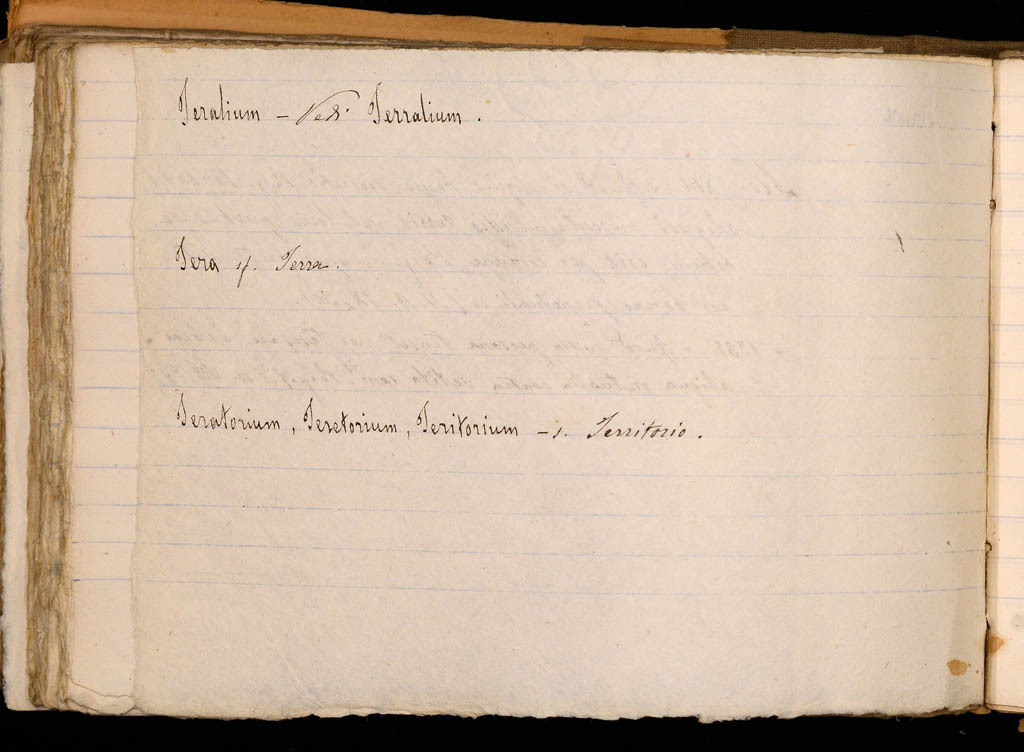 Teralium – Vedi Terralium.
Tera sf. Terra.
Teratorium, Teretorium, Teritorium – s. Territorio.